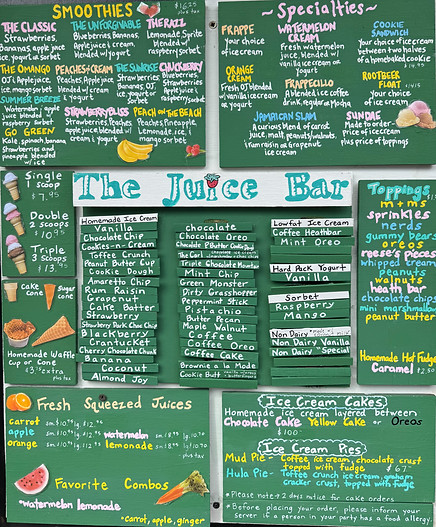 SMOOTHIES
$16.25
plus tax
THE CLASSIC
Strawberries,
Bananas, apple juice
ice, yogurt or sorbet
THE UNFORGNABLE
Blueberries, Bananas,
Apple juice & cream
blended w/yogurt
THE RAZZ
Lemonade Sprite
blended w/
raspberry sorbet
THE OMANGO
Bananas, Apple Juice
ice, mango sorbet
PEACHES & CREAM
Peaches, Apple juice
ice & cream
blended w/yogurt
THE SUNRISE
Strawberries
Bananas, OJ,
raspberry
sorbet
CHUCKBERRY
Blueberries,
Strawberries
blended w/
raspberry sorbet
SUMMER BREEZE
Watermelon, apple
juice blended w/
raspberry sorbet
STRAWBERRY BLISS
Strawberries, Peaches,
apple juice, blended w/
cream & yogurt
PEACH ON THE BEACH
Peaches, Pineapple,
Lemonade, ice &
mango sorbet
GO GREEN
Kale, spinach, banana
Strawberries and
pineapple blended
w/ice
~ Specialties ~
FRAPPE
your choice
of ice cream
WATERMELON
CREAM
Fresh watermelon
juice, blended w/
vanilla ice cream or
yogurt
COOKIE
SANDWICH
Your choice of ice cream
between two halves
of a homebaked cookie
$14.95
ORANGE
CREAM
Fresh OJ blended
w/vanilla ice cream
or yogurt
FRAPPECILLO
A blended ice coffee
drink, regular or Mocha
ROOTBEER
FLOAT
Your choice
of ice cream
JAMAICAN SLAM
A curious blend of carrot
juice, malt, peanuts, walnuts,
rum raisin or Grapenut
ice cream
SUNDAE
Made to order -
price of ice cream
plus price of toppings
The Juice Bar
Single
1 scoop
$7.95
Double
2 scoops
$10.95
Triple
3 scoops
$13.95
cake
cone
sugar
cone
Homemade Waffle
Cup or Cone
$3.75 extra
plus tax
Homemade Ice Cream
Vanilla
Chocolate Chip
Cookies-n-Cream
Toffee Crunch
Peanut Butter Cup
Cookie Dough
Amaretto Chip
Rum Raisin
Grapenut
Cake Batter
Strawberry
Strawberry Chunk Choc Chip
Blackberry
Crantucket
Cherry Chocolate Chunk
Banana
Coconut
Almond Joy
chocolate
Chocolate Oreo
Chocolate P. Butter Cookie Dough
Triple Chocolate Mountain
Mint Chip
Green Monster
Dirty Grasshopper
Peppermint Stick
Pistachio
Butter Pecan
Maple Walnut
Coffee
Coffee Oreo
Coffee Cake
Brownie a la Mode
Cookie Butt
Lowfat Ice Cream
Coffee Heathbar
Mint Oreo
Hard Pack Yogurt
Vanilla
Sorbet
Raspberry
Mango
Non Dairy
Non Dairy Vanilla
Non Dairy "Special
Toppings
m+ms
sprinkles
nerds
gummy bears
oreos
reese's pieces
whipped cream
peanuts
walnuts
heath bar
chocolate chips
mini marshmallow
peanut butter
Homemade Hot Fudge
Caramel $2.50
Fresh Squeezed Juices
carrot
apple
orange
watermelon
lemonade
plus tax
Favorite Combos
•watermelon lemonade
•carrot, apple, ginger
Ice Cream Cakes
Homemade ice cream layered between
Chocolate Cake Yellow Cake or Oreos
$100
Ice Cream Pies
Mud Pie - Coffee ice cream, chocolate crust
topped with fudge $67
Hula Pie - Toffee crunch ice cream, graham
cracker crust, topped with fudge
• Please note + 2 days notice for cake orders
• Before placing your order, please inform your
server if a person in your party has a food allergy